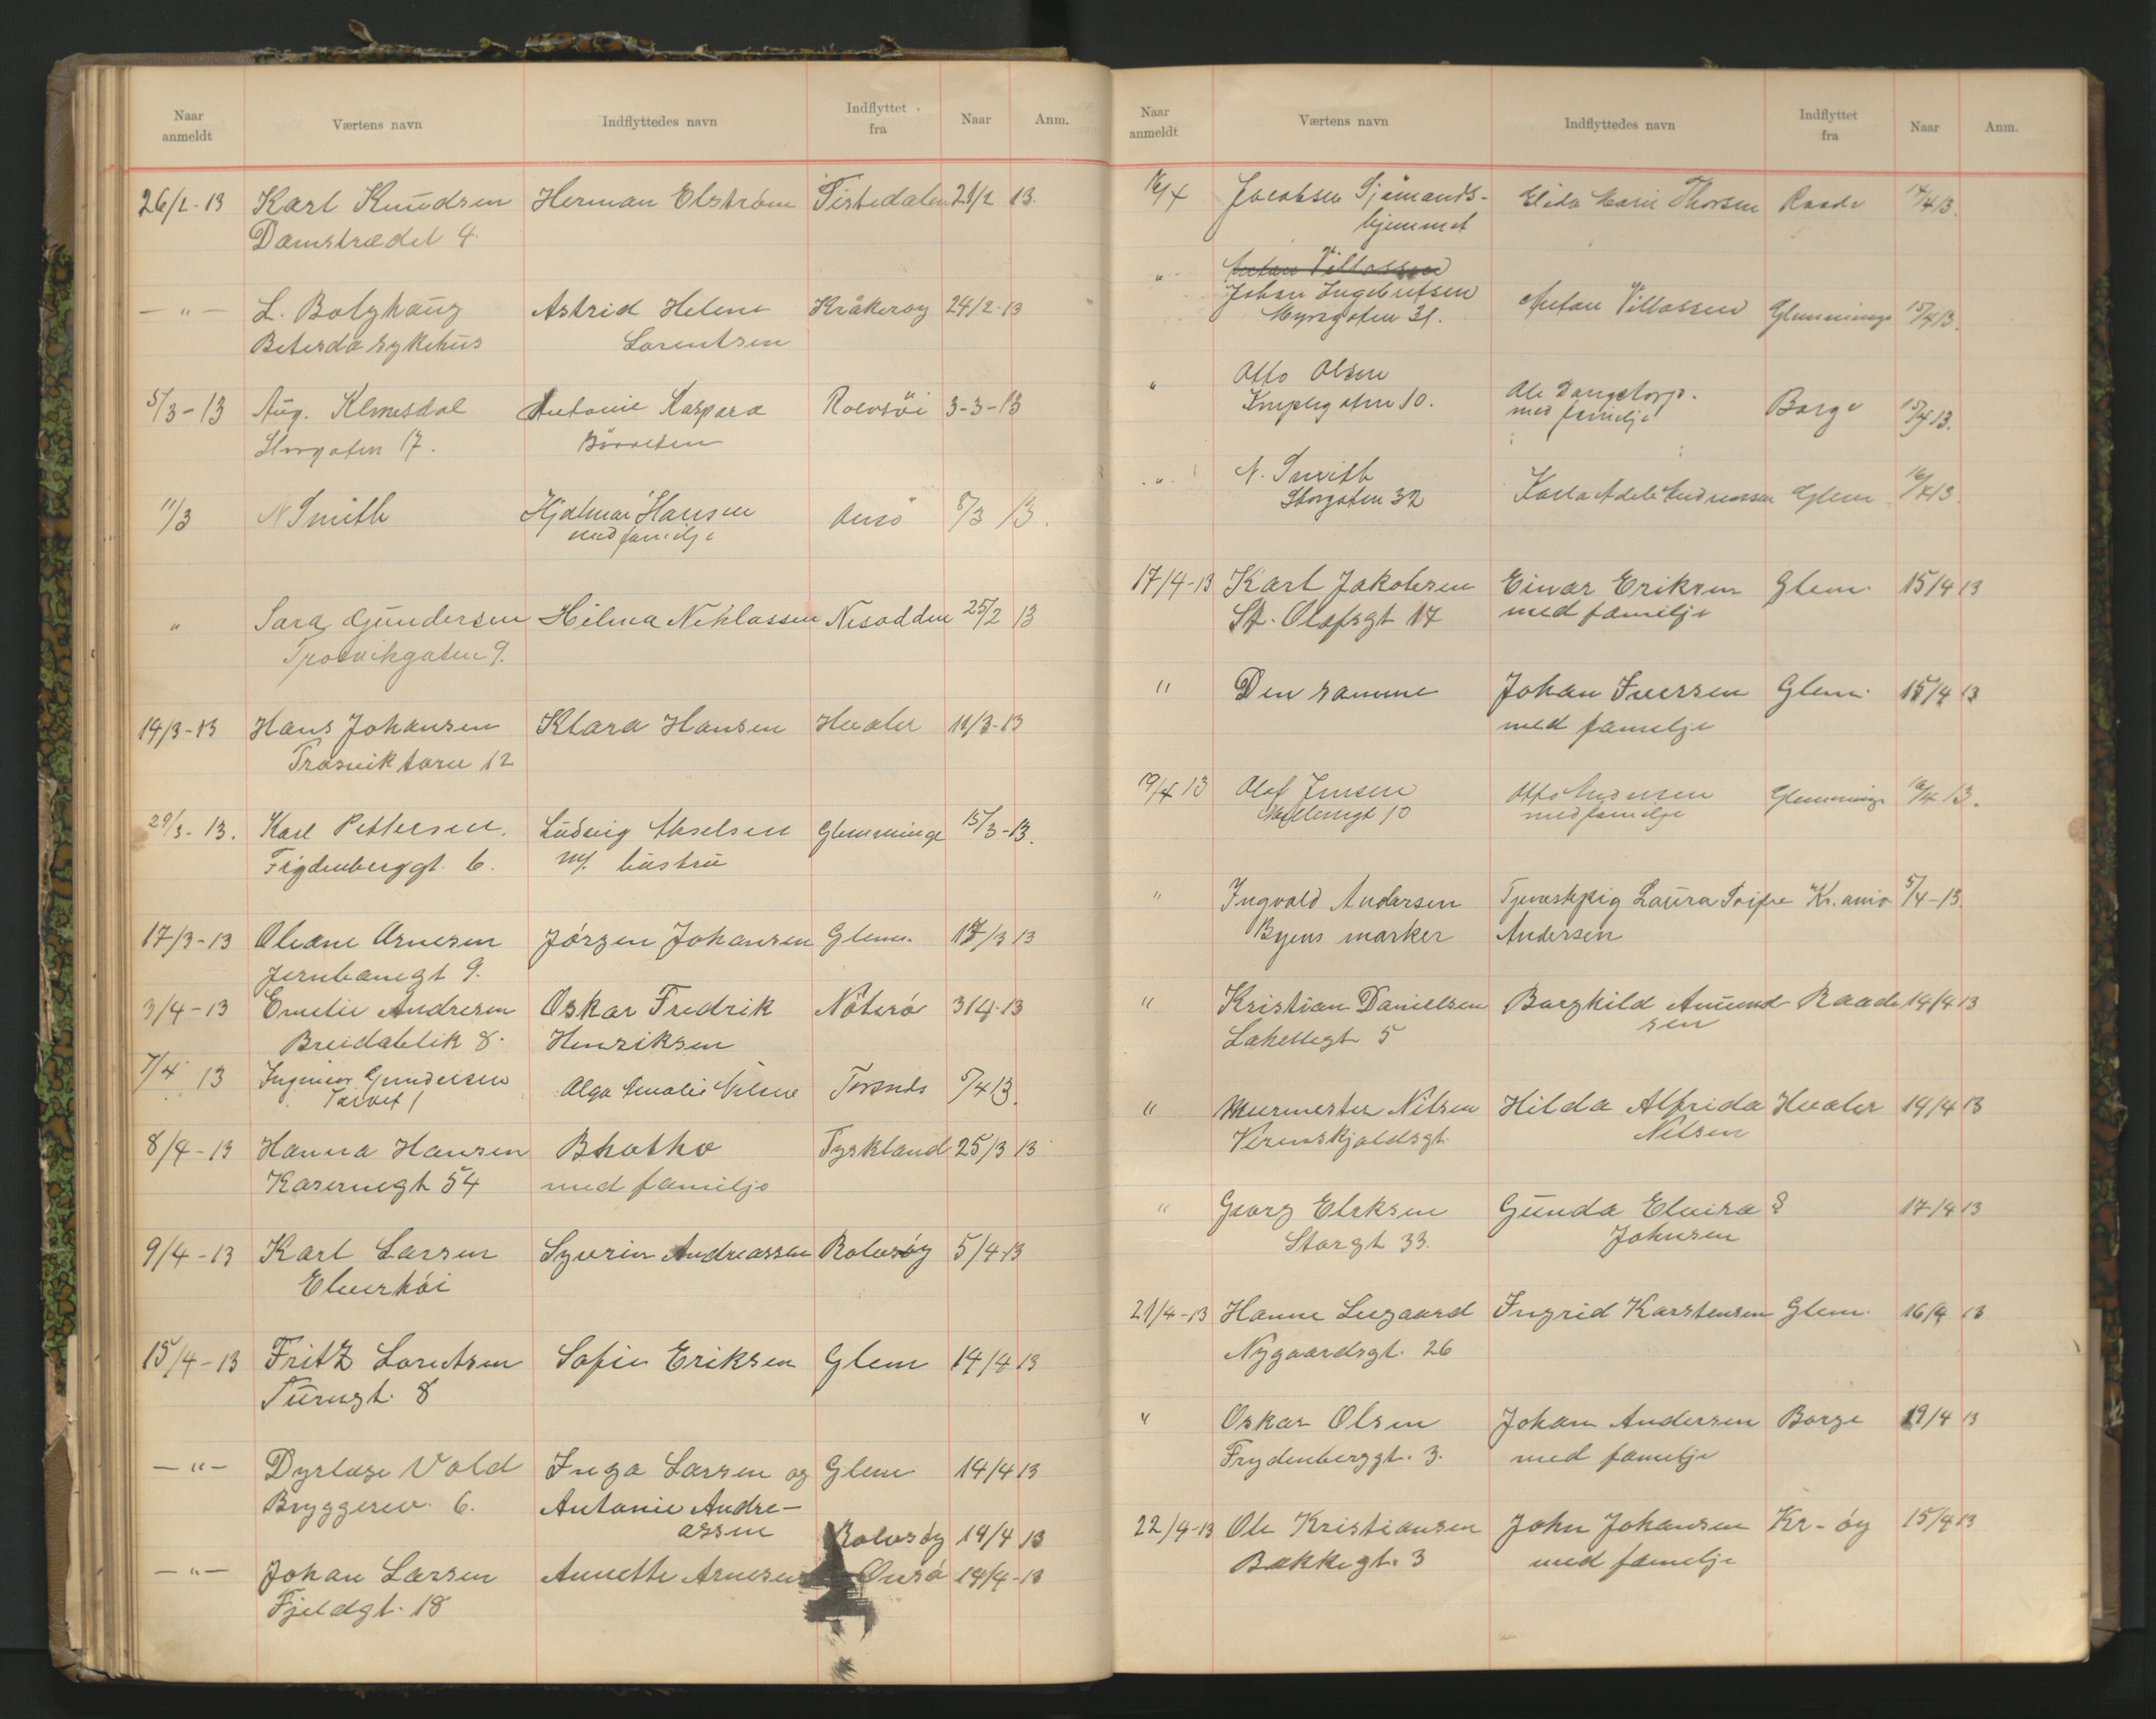 Naar anmeldt Værtens navn Indflyttedes navn Indflyttet fra Naar Anm.
26/2-13 Karl Knudsen Herman Elstrøm Tistedalen 21/2 13.
Damstrædet 4.
— " — L. Bolghaug Astrid Helene Kråkerøy 24/2-13
Betesda sykehus Lorentsen
5/3-13 Aug. Antonie Kaspara Rolvsöi 3-3-13
Storgaten 17.
11/3 N Smith Hjalmar Hansen Onsö 8/3 13.
med familje
" Sara Gundersen Hilma Niklassen Nesodden 25/2 13
Trosvikgaten 9.
14/3-13 Hans Johansen Klara Hansen Hvaler 11/3-13
Trosvik 12
29/3-13. Karl Pettersen. Ludvig Akselsen Glemminge 15/3-13.
Frydenberggt. 6. m/ hustru
17/3-13 Oleane Arnesen Jørgen Johansen Glem. 17/3 13
Jernbanegt 9.
3/4-13 Emelie Andresen Oskar Fredrik Nøterø 3/4-13
Breidablik 8. Henriksen
7/4 13 Ingeniør Gundersen Olga Amalie Torsnes 5/4 13.
Torvet 1
8/4-13 Hanna Hansen Bhatho Tyskland 25/3 13
Kasernegt 54 med familje
9/4-13 Karl Larsen Syverin Andreassen Rolvsøy 5/4-13
Elverhöi
15/4-13 Fritz Lorentsen Sofie Eriksen Glem 14/4 13
Turngt. 8
— " — Dyrlæge Vold Inga Larsen og Glem 14/4 13
Bryggeriv. 6. Antonie Andre-
assen Rolvsøy 14/4 13
— " — Johan Larsen Annette Arnesen Onsø 14/4-13
Fjeldgt. 18
Naar anmeldt Værtens navn Indflyttedes navn Indflyttet fra Naar Anm.
16/4 Jacobsen Sjømands- Elida Marie Thorsen Raade 14/4 13.
hjemmet
" Anton Villassen
Johan Ingebretsen Anton Villassen Glemminge 15/4 13.
Myrgaten 31.
" Otto Olsen Ole
10. med familje Borge 15/4 13.
" N. Smith Karla Adele Andreassen Glem 16/4 13
Storgaten 32
17/4-13 Karl Jakobsen Einar Eriksen Glem. 15/4 13
St. Olafsgt 17 med familje
" Den samme Johan Iversen Glem. 15/4 13
med familje
19/4 13 Olaf Jensen Otto Andersen Glemminge 18/4 13.
10 med familje
" Ingvald Andersen Tjenestpig Laura Kr.ania 5/4-13.
Byens marker Andersen
" Kristian Danielsen Borghild Amund- Raade 14/4 13
Lakellegt 5 sen
" Murmester Nilsen Hilda Alfrida Hvaler 14/4 13
Verenskjoldsgt. Nilsen
" Georg Eleksen Gunda Elvira ? 17/4 13
Storgt 33. Johnsen
21/4-13 Hanne Leegaard Ingrid Karstensen Glem. 16/4 13
Nygaardsgt. 26
" Oskar Olsen Johan Andersen Borge 19/4 13
Frydenberggt. 3. med familje
22/4-13 Ole Kristiansen John Johansen Kr-øy 15/4 13
Bakkegt. 3 med familje